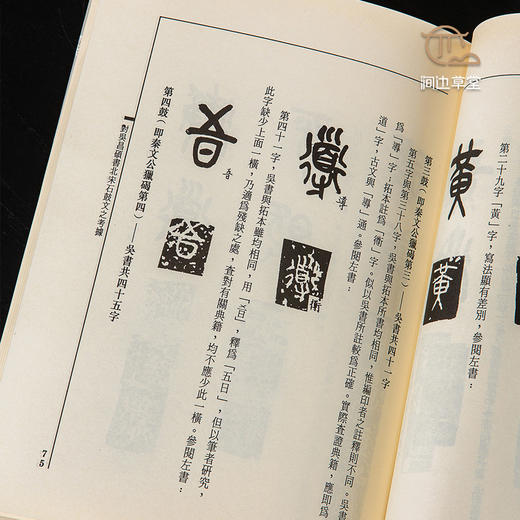 澗边草堂
第二十九字「黃」字，寫法顯有差別，參閱左書：
黃
黃
第三鼓（即秦文公獵碣第三）——吳書共四十一字
第五字與第三十八字，吳書與拓本所書均相同，惟編印者之註釋則不同。吳書
爲「導」字，拓本註爲「衛」字。似以吳書所註較爲正確。實際查證典籍，應即爲
道」字，古文與「導」通。參閱左書：
導
衛
第四十一字，吳書與拓本雖均相同，用「㕣」，釋爲「五日」，但以筆者研究，
此字缺少上面一橫，乃適爲殘缺之處，查對有關典籍，均不應少此一橫。參閱左書：
吾
第四鼓（即秦文公獵碣第四）——吳書共四十五字
對吳昌碩書北宋石鼓文之考據
75